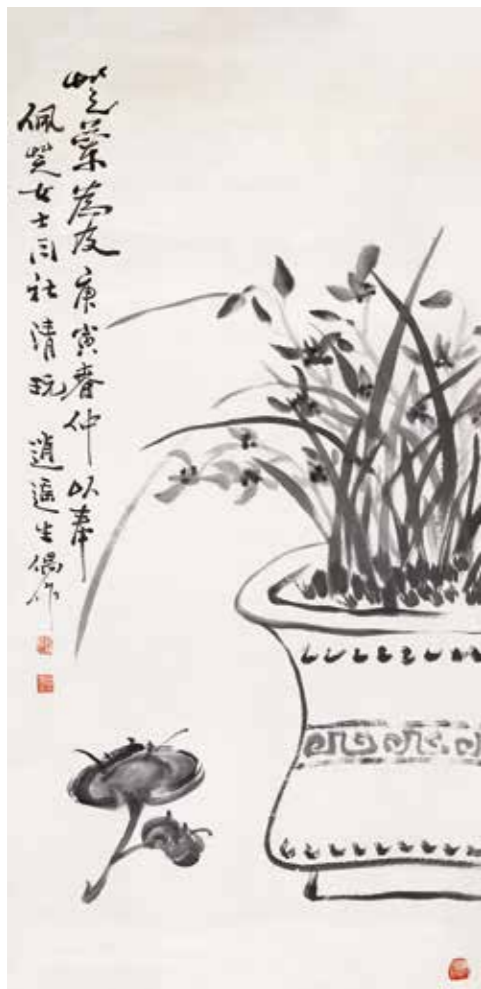 芝蘭為友庚寅春仲以奉
佩芝女士同社清玩 逍遙生偶作